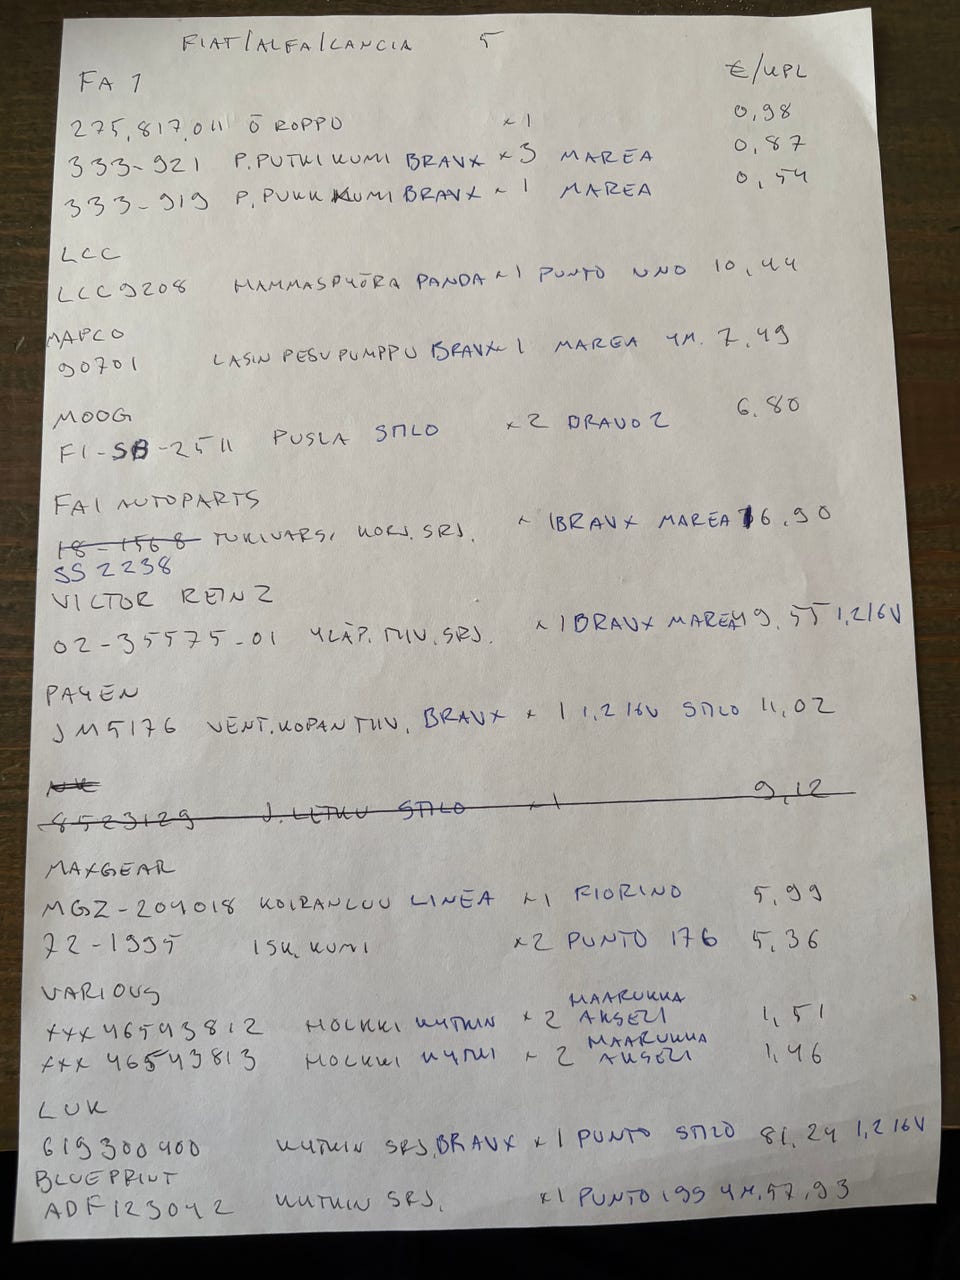 FIAT/ALFA/LANCIA 5
FA 1 €/KPL
275.817.011 Ö ROPPU x1 0,98
333-921 P.PUTKIKUMI BRAVX x3 MAREA 0,87
333-919 P.PUKK KUMI BRAVX x1 MAREA 0,54
LCC
LCC9208 HAMMASPYÖRÄ PANDA x1 PUNTO UNO 10,44
MAPCO
90701 LASIN PESUPUMPPU BRAVX x1 MAREA YM. 7,49
MOOG
FI-SB-2511 PUSLA STILO x2 BRAVO 2 6.80
FAI AUTOPARTS
18-1568 TUKIVARSI KORJ. SRJ. x 1 BRAVX MAREA 16,90
SS2238
VICTOR REINZ
02-35575-01 YLÄP. TIIV. SRJ. x1 BRAVX MAREA 49,55 1,2 16V
PAYEN
JM5176 VENT.KOPAN TIIV. BRAVX x1 1,2 16V STILO 11,02
NK
8523129 J.LETKU STILO x1 9,12
MAXGEAR
MGZ-204018 KOIRANLUU LINEA x1 FIORINO 5,99
72-1995 ISK. KUMI x2 PUNTO 176 5,36
VARIOUS
xxx 46543812 HOLKKI KYTKIN x2 HAARUKKA AKSELI 1,51
xxx 46543813 HOLKKI KYTKI x2 HAARUKKA AKSELI 1,46
LUK
619300400 KYTKIN SRJ. BRAVX x1 PUNTO STILO 81,24 1,2 16V
BLUEPRINT
ADF123042 KYTKIN SRJ. x1 PUNTO 199 YM. 57,93